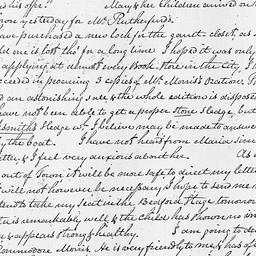 his offe" Mary & her children arrived on
yesterday for Mr. Rutherfurd's.
have purchased a new lock for the garret closet, as
old one is lost tho' for a long time I hoped it was only
applying at almost every Book Store in the City, I
ceeded in procuring 3 copies of Mr. Morris's Oration. I
had an astonishing sale & the whole edition is disposed
have not been able to get a proper stone Sledge, but
smith's Sledge wh. I believe may be made to answer
by the boat. I have not heard from Maria since
letter, & I feel very anxious about her. As
out of Town it will be more safe to direct my letters
will not however be necessary I hope to send me
tend to take my seat in the Bedford Stage tomorrow
is remarkably well & the child has thrown
& appears strong & healthy. I am going to
Commodore Morris. He is very friendly to me & has